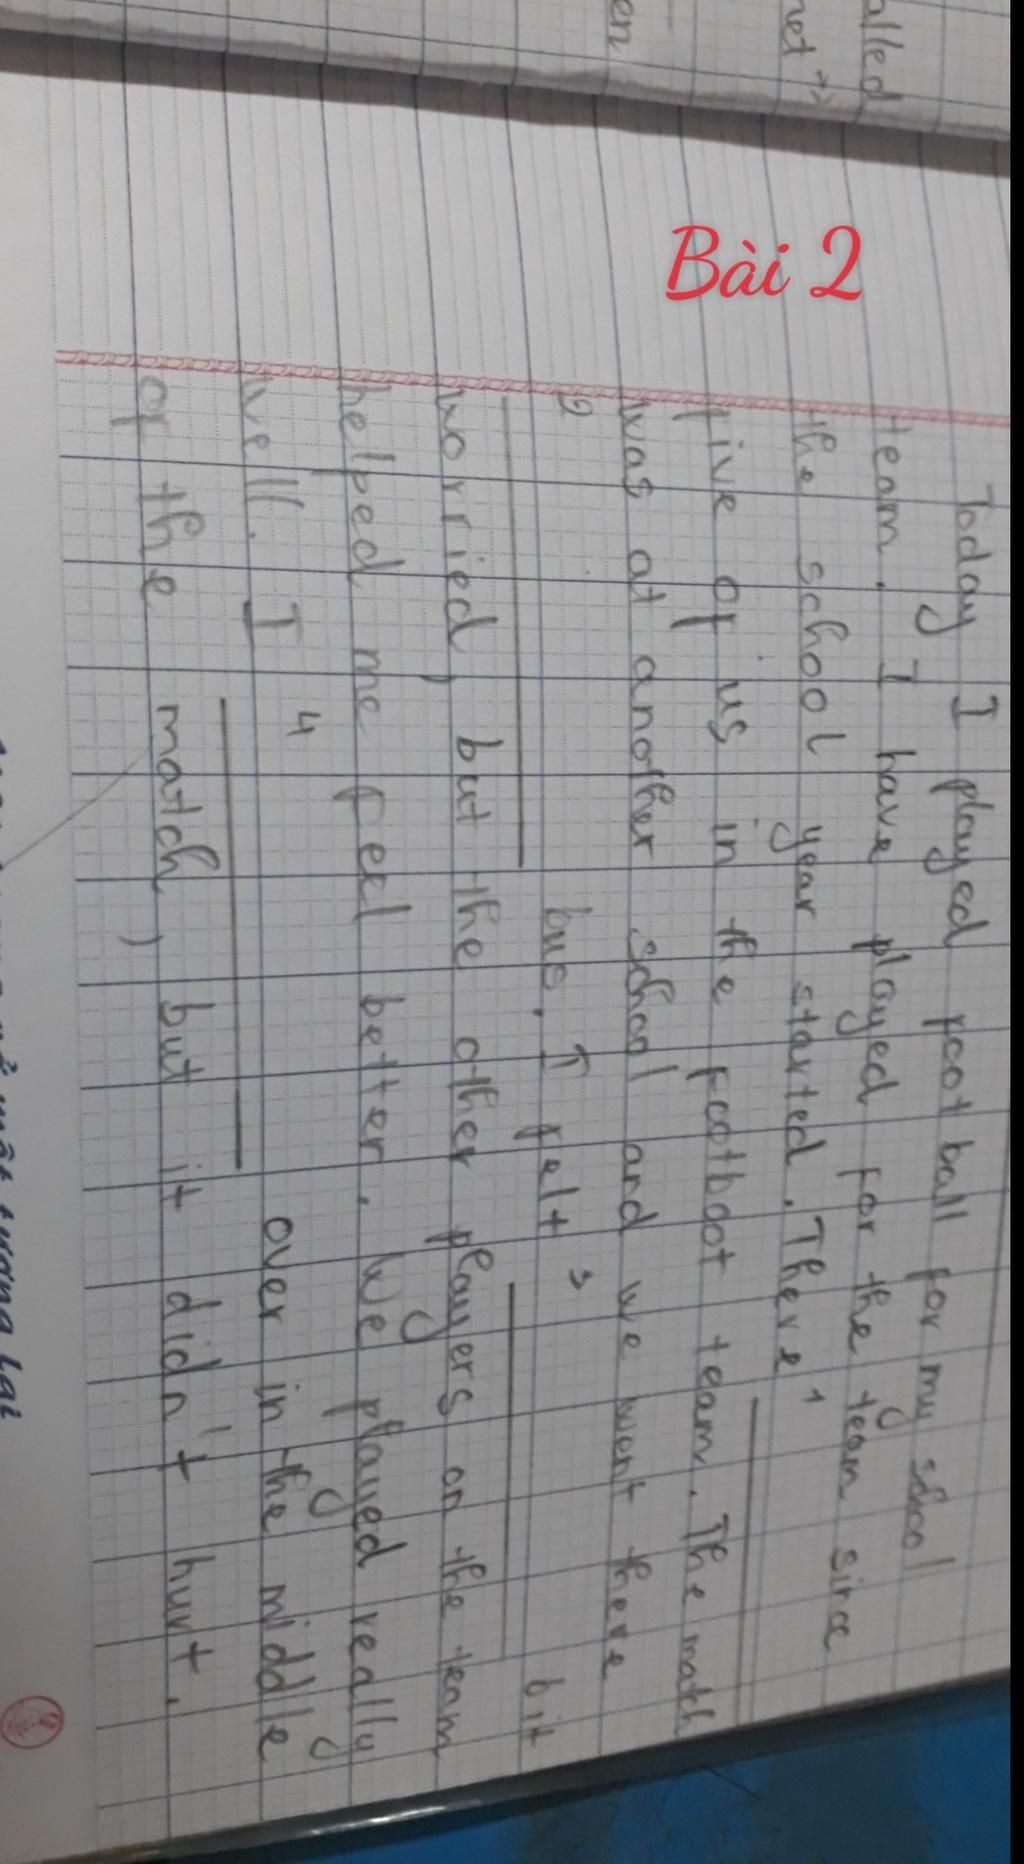 alled
net
en
Bài 2
Today I played football for my school
team. I have played for the team since
the school year started. There 1
five of us in the footboot team. The match
was at another school and we went there
2 bus. I felt 3 bit
worried, but the other players on the team
helped me feel better. We played really
well. I 4 over in the middle
of the match, but it didn't hurt.